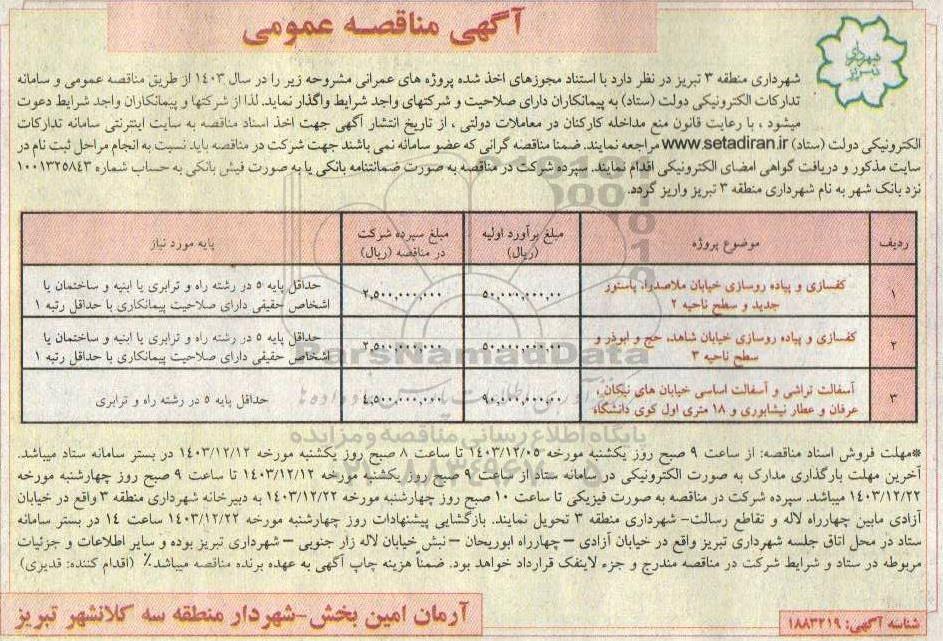 آگهی مناقصه عمومی
شهرداری تبریز
شهرداری منطقه ۳ تبریز در نظر دارد با استناد مجوزهای اخذ شده پروژه های عمرانی مشروحه زیر را در سال ۱۴۰۳ از طریق مناقصه عمومی و سامانه
تدارکات الکترونیکی دولت (ستاد) به پیمانکاران دارای صلاحیت و شرکتهای واجد شرایط واگذار نماید. لذا از شرکتها و پیمانکاران واجد شرایط دعوت
میشود ، با رعایت قانون منع مداخله کارکنان در معاملات دولتی ، از تاریخ انتشار آگهی جهت اخذ اسناد مناقصه به سایت اینترنتی سامانه تدارکات
الکترونیکی دولت (ستاد) www.setadiran.ir مراجعه نمایند. ضمنا مناقصه گرانی که عضو سامانه نمی باشند جهت شرکت در مناقصه باید نسبت به انجام مراحل ثبت نام در
سایت مذکور و دریافت گواهی امضای الکترونیکی اقدام نمایند. سپرده شرکت در مناقصه به صورت ضمانتنامه بانکی یا به صورت فیش بانکی به حساب شماره ۱۰۰۱۳۲۵۸۴۳
نزد بانک شهر به نام شهرداری منطقه ۳ تبریز واریز گردد.
ردیف موضوع پروژه مبلغ برآورد اولیه (ریال) مبلغ سپرده شرکت در مناقصه (ریال) پایه مورد نیاز
۱ کفسازی و پیاده روسازی خیابان ملاصدرا، پاستور جدید و سطح ناحیه ۲ ۵۰,۰۰۰,۰۰۰,۰۰۰ ۲,۵۰۰,۰۰۰,۰۰۰ حداقل پایه ۵ در رشته راه و ترابری یا ابنیه و ساختمان یا اشخاص حقیقی دارای صلاحیت پیمانکاری با حداقل رتبه ۱
۲ کفسازی و پیاده روسازی خیابان شاهد، حج و ابوذر و سطح ناحیه ۳ ۵۰,۰۰۰,۰۰۰,۰۰۰ ۲,۵۰۰,۰۰۰,۰۰۰ حداقل پایه ۵ در رشته راه و ترابری یا ابنیه و ساختمان یا اشخاص حقیقی دارای صلاحیت پیمانکاری با حداقل رتبه ۱
۳ آسفالت تراشی و آسفالت اساسی خیابان های نیکان، عرفان و عطار نیشابوری و ۱۸ متری اول کوی دانشگاه ۹۰,۰۰۰,۰۰۰,۰۰۰ ۴,۵۰۰,۰۰۰,۰۰۰ حداقل پایه ۵ در رشته راه و ترابری
ParsNamadData
پایگاه اطلاع رسانی مناقصه و مزایده
*مهلت فروش اسناد مناقصه: از ساعت ۹ صبح روز یکشنبه مورخه ۱۴۰۳/۱۲/۰۵ تا ساعت ۸ صبح روز یکشنبه مورخه ۱۴۰۳/۱۲/۱۲ در بستر سامانه ستاد میباشد.
آخرین مهلت بارگذاری مدارک به صورت الکترونیکی در سامانه ستاد از ساعت ۹ صبح روز یکشنبه مورخه ۱۴۰۳/۱۲/۱۲ تا ساعت ۹ صبح روز چهارشنبه مورخه
۱۴۰۳/۱۲/۲۲ میباشد. سپرده شرکت در مناقصه به صورت فیزیکی تا ساعت ۱۰ صبح روز چهارشنبه مورخه ۱۴۰۳/۱۲/۲۲ به دبیرخانه شهرداری منطقه ۳ واقع در خیابان
آزادی مابین چهارراه لاله و تقاطع رسالت- شهرداری منطقه ۳ تحویل نمایند. بازگشایی پیشنهادات روز چهارشنبه مورخه ۱۴۰۳/۱۲/۲۲ ساعت ۱۴ در بستر سامانه
ستاد در محل اتاق جلسه شهرداری تبریز واقع در خیابان آزادی – چهارراه ابوریحان – نبش خیابان لاله زار جنوبی – شهرداری تبریز بوده و سایر اطلاعات و جزئیات
مربوطه در ستاد و شرایط شرکت در مناقصه مندرج و جزء لاینفک قرارداد خواهد بود. ضمناً هزینه چاپ آگهی به عهده برنده مناقصه میباشد./ (اقدام کننده: قدیری)
آرمان امین بخش-شهردار منطقه سه کلانشهر تبریز
شناسه آگهی: ۱۸۸۳۲۱۹